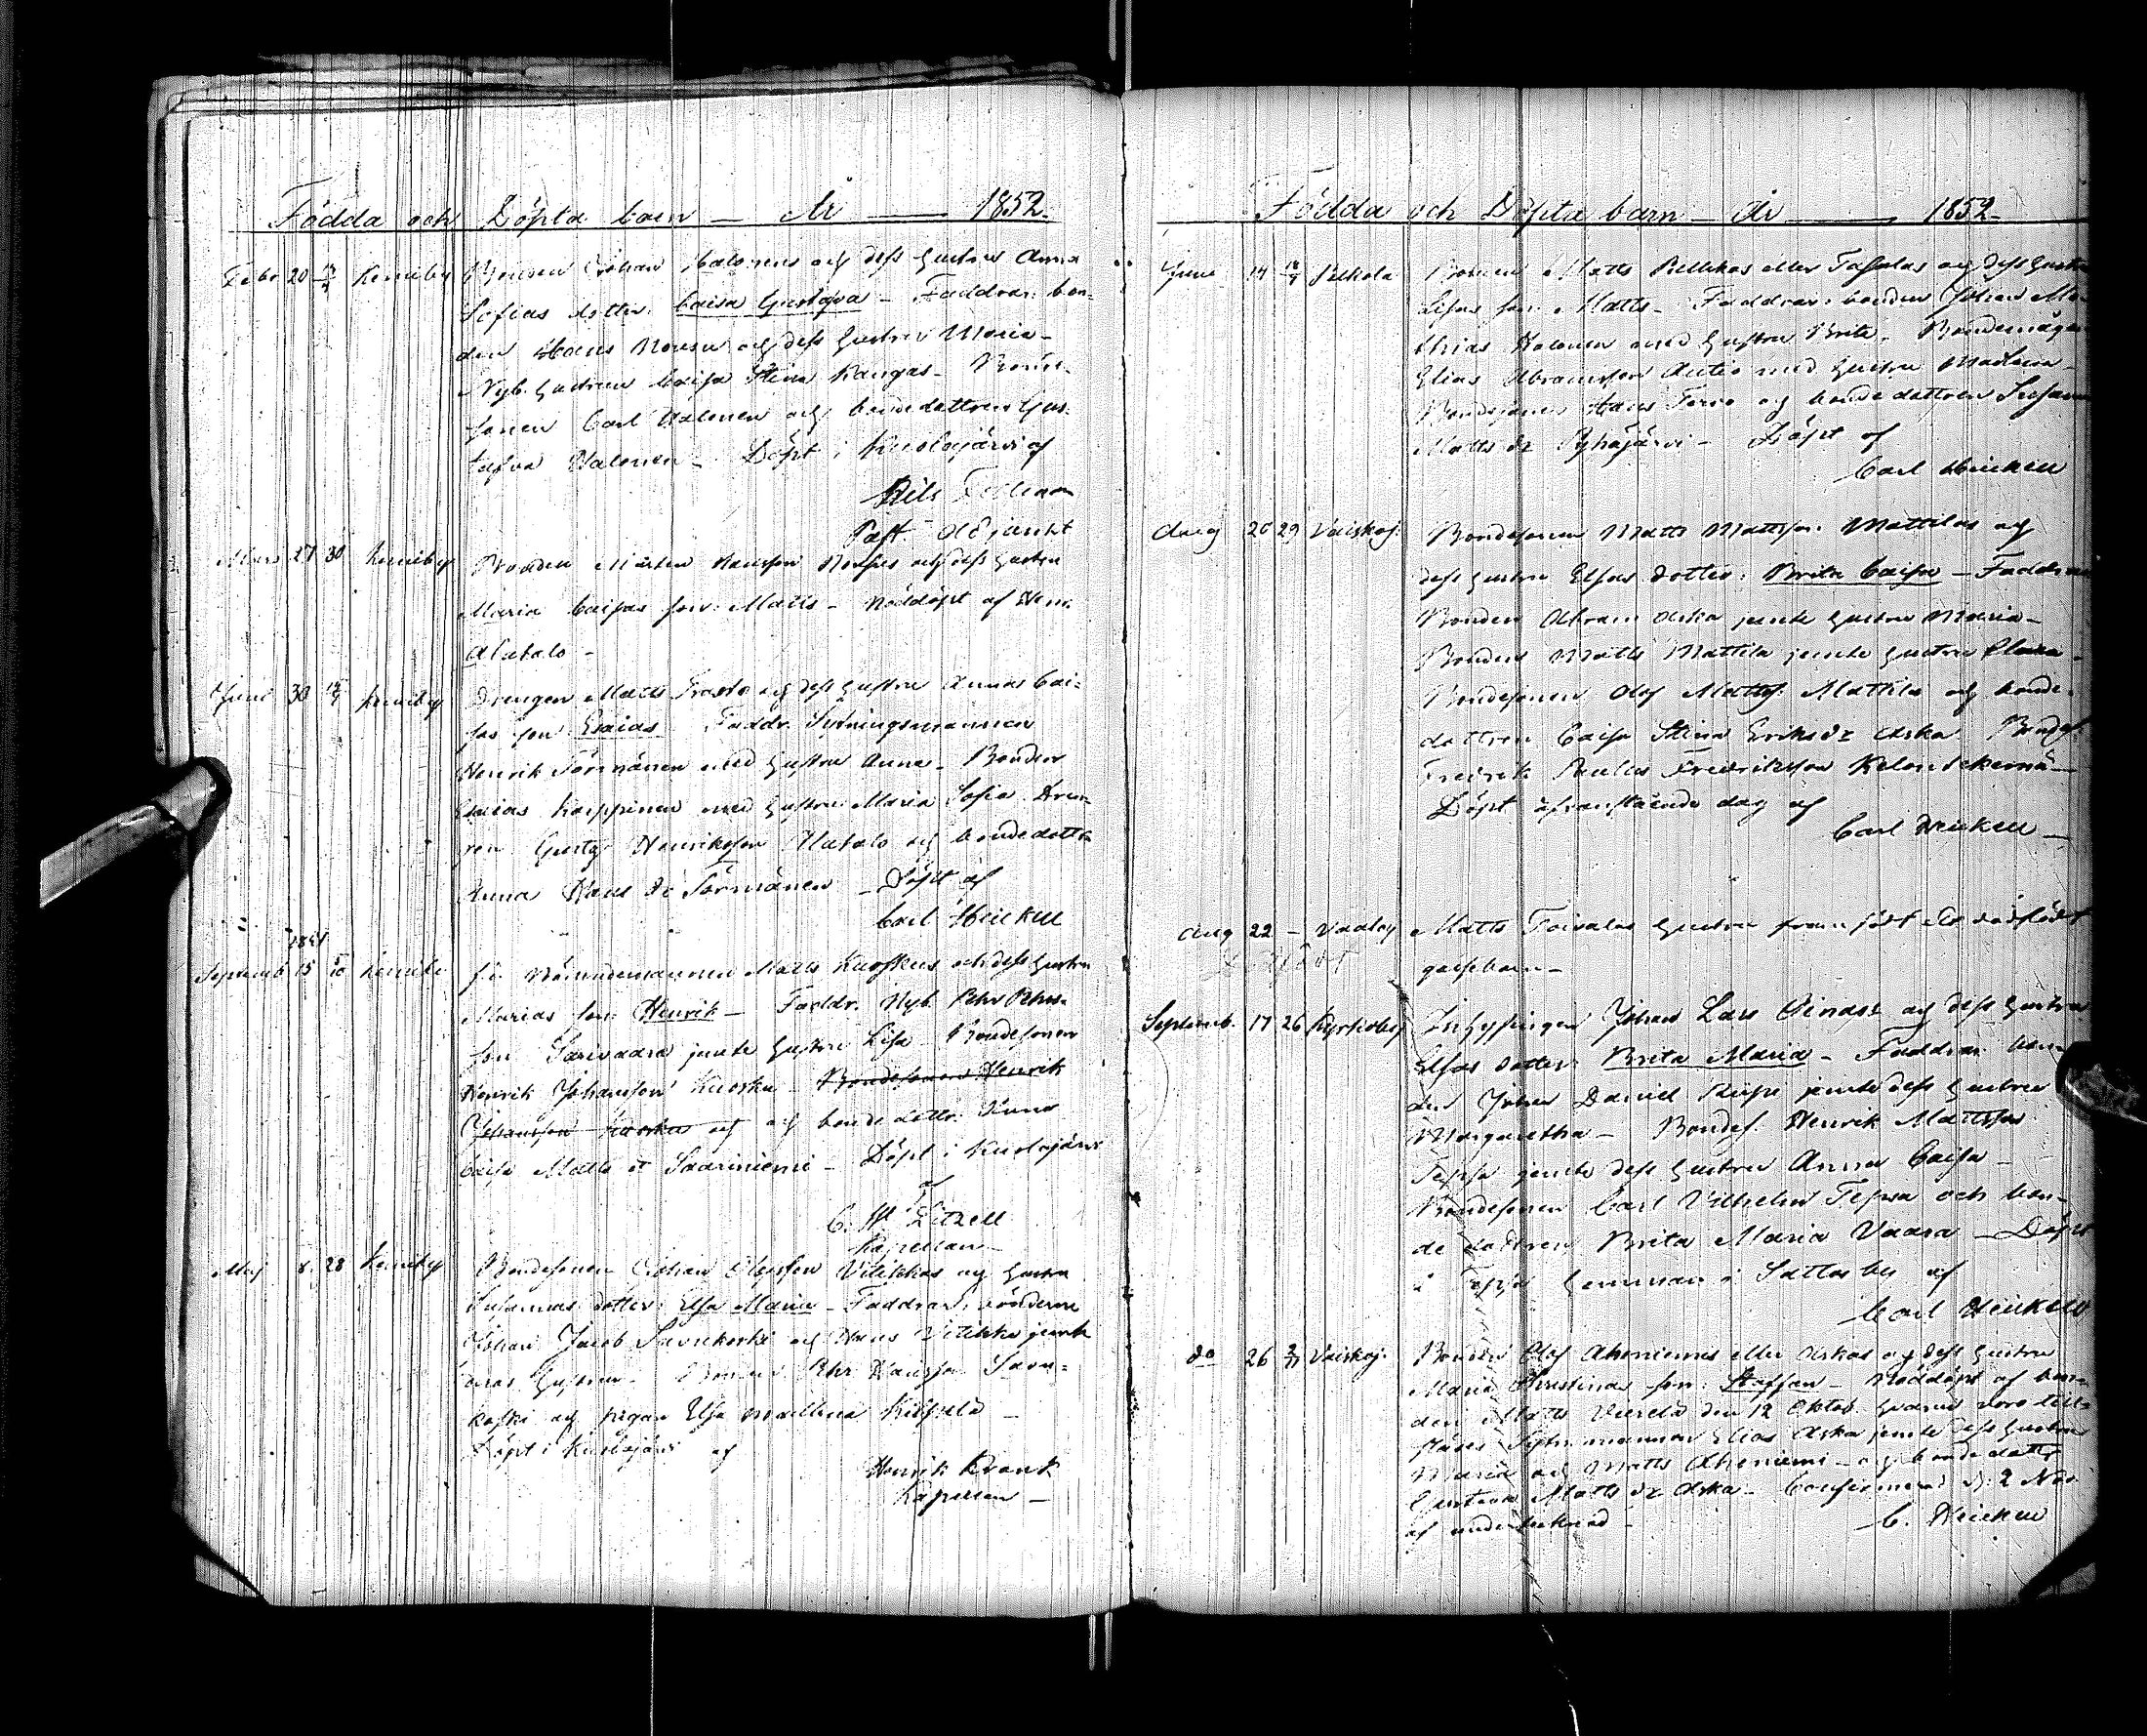 Födda och Döpta barn — År — 1852.
Febr 20 Kemiby Bonden Johan Halonens och dess hustrus Anna
Sofias dotter: Caisa Gustafva — Faddrar: bon-
den Hans och dess hustru Maria —
Nyb. hustrun Caisa Stina Kangas — Bonde-
sonen Carl Halonen och bondedottren Gus-
tafva Halonen — Döpt i Kuolajärvi af
Nils Fellman
Past. Adjunkt
Mars 27 30 Kemiby Bonden Mårten Hansson och dess hustru
Maria Caisas son: Matts — Nöddöpt af Henr.
Alatalo —
Juni 30 Kemiby Drengen Matts och dess hustru Annas Cai-
sas son Esaias Faddr. Sytningsmannen
Henrik Törmänen med hustru Anna — Bonden
Esaias Karppinen med hustru Maria Sofia. Dren-
gen Gustaf Henriksson Alatalo och bondedottr.
Anna Hans dr Törmänen — Döpt af
Carl Heickell
1851
Septemb 15 Kemiby f.d. Nämndemannen Matts Kuoskus och dess hustru
Marias son: Henrik — Faddr. Nyb. Pehr Pehrs-
son Sarivaara jemte hustru Lisa — Bondesonen
Henrik Johansson Kuosku — Bondesonen Henrik
Johansson Kuosku och och bondedottr. Anna
Caisa Matts dr Saariniemi — Döpt i Kuolajärvi
af
C. W. Litzell
Kapellan —
Maj 8 28 Kemiby Bondesonen Johan Olofsson Vitikkas och hustru
Susannas dotter: Elsa Maria — Faddrar: bönderne
Johan Jacob Savukoski och Hans Vitikka jemte
deras hustrur — Bonden Pehr Hansson Savu-
koski och pigan Elsa
Döpt i Kuolajärvi af
Henrik Kranck
Kapellan —
Födda och Döpta barn — År — 1852 —
Juni 14 Pelkola Bonden Matts Pelkkas eller Tassalas och dess hustru
Lisas son: Matts — Faddrar: bonden Johan Ma-
thias Halonen med hustru Brita — Bondemågen
Elias Abramsson Autio med hustru Madlena —
Bondesonen Hans Tervo och bondedottren Susanna
Matts dr Pyhäjärvi — Döpt af
Carl Heickell
Aug 20 29 Vaiskoj. Bondesonen Matts Mattss. Mattilas och
dess hustru Elsas dotter: Brita Caisa — Faddrar
Bonden Abram Aska jemte hustru Maria —
Bonden Matts Mattila jemte hustru
Bondesonen Olof Mattss. Mattila och bonde-
dottren Caisa Stina Eriks dr Aska Bondes.
Fredrik Paulus Fredriksson Kelontekemä —
Döpt ofvanstående dag af
Carl Heickell —
Aug 22 — Vaaloj Matts Toivolas hustru framfödt ett dödfödt
Dödfödt gossebarn —
Septemb. 17 26 Kyrkoby Inhysingen Johan Lars Oinas: och dess hustru
Elsas dotter: Brita Maria — Faddrar: bon-
den Johan Daniel jemte dess hustru
Margaretha — Bondes. Henrik Mattsson
Tepsa jemte dess hustru Anna Caisa —
Bondesonen Carl Vilhelm Tepsa och bon-
de dottren Brita Maria Vaara — Döpt
i Tepsa hemman i Sattasby af
Carl Heickell
do 26 2/11 Vaiskoj. Bonden Olof Aheniemis eller Askas och dess hustru
Maria Christinas son: Staffan — Nöddöpt af bon-
den Matts den 12 Oktob. hvarvid voro till-
städes Sytn. mannen Elias Aska jemte dess hustru
Maria och Matts Aheniemi — och bondedottr.
Gustava Matts dr Aska — Confirmerad d. 2 Nov.
af undertecknad — C. Heickell